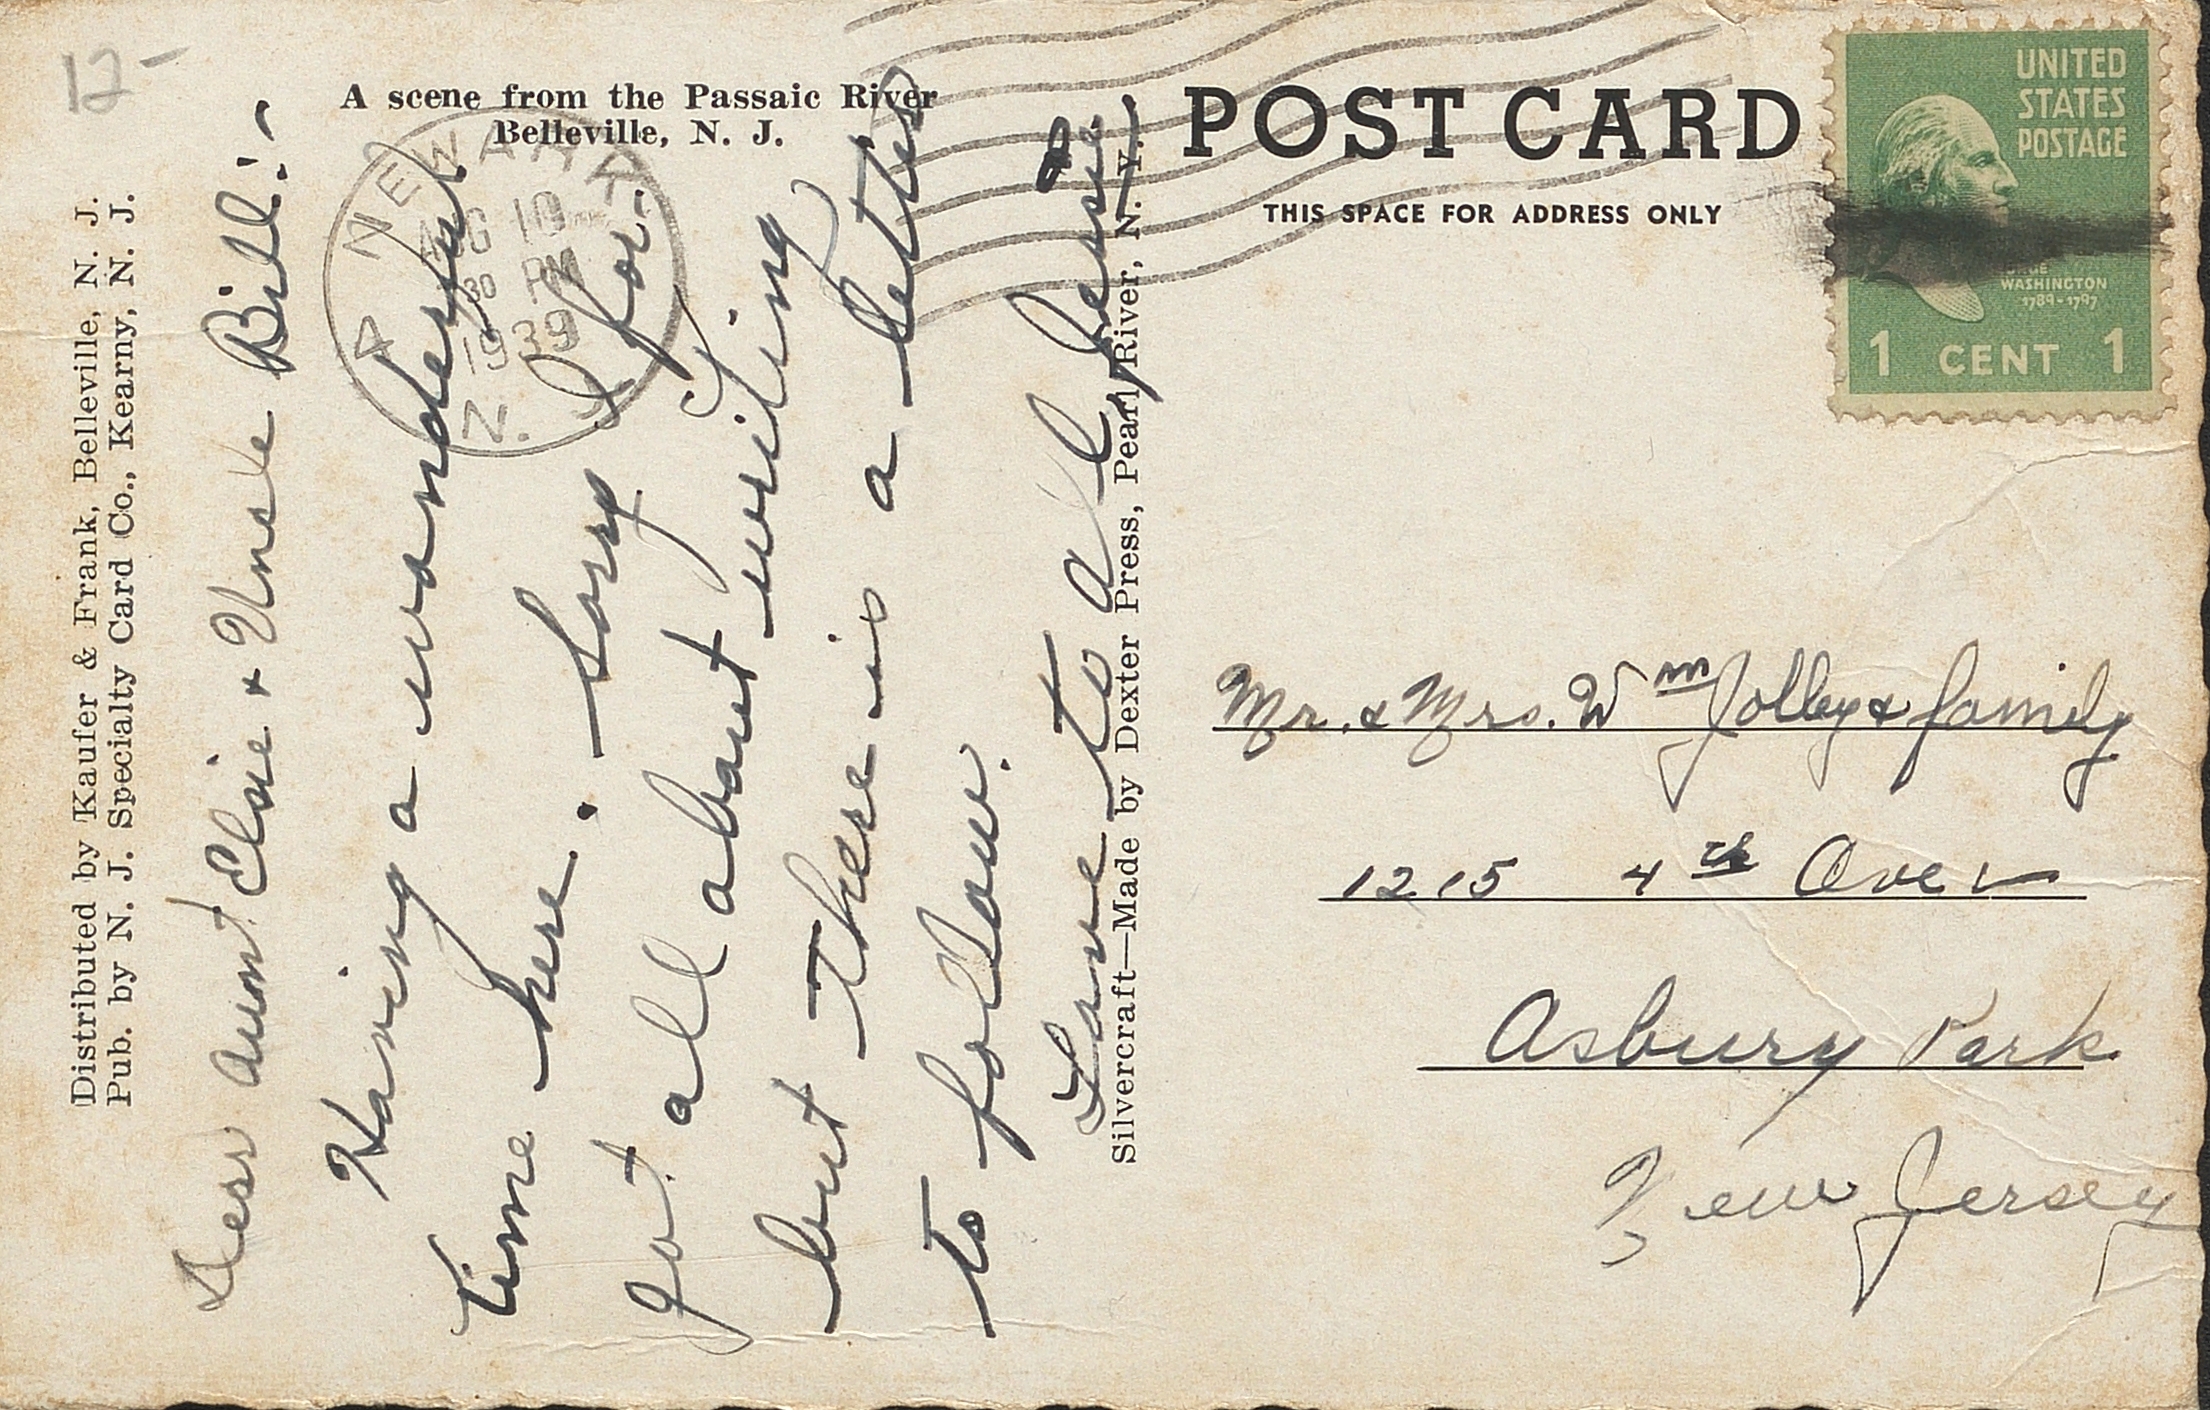 12-
A scene from the Passaic River
Belleville, N. J.
Distributed by Kaufer & Frank, Belleville, N. J.
Pub. by N. J. Specialty Card Co., Kearny, N. J.
Dear Aunt Elsie & Uncle Bill:-
Having a wonderful
time here. Sorry I for-
got all about writing
but there is a letter
to follow.
Love to all, Jessie
Silvercraft—Made by Dexter Press, Pearl River, N. Y.
NEWARK
N. J.
AUG 10
30 PM
1939
POST CARD
THIS SPACE FOR ADDRESS ONLY
UNITED
STATES
POSTAGE
WASHINGTON
1789-1797
1 CENT 1
Mr. & Mrs. Wm Jolley & family
1215 4th Ave
Asbury Park
New Jersey